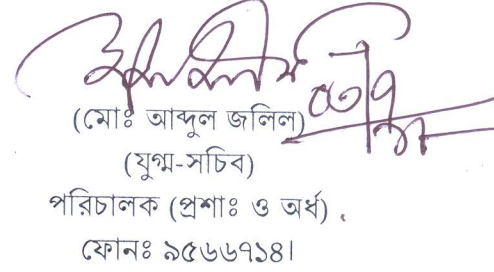 (মোঃ আব্দুল জলিল)
(যুগ্ম-সচিব)
পরিচালক (প্রশাঃ ও অর্থ)
ফোনঃ ৯৫৬৬৭১৪।